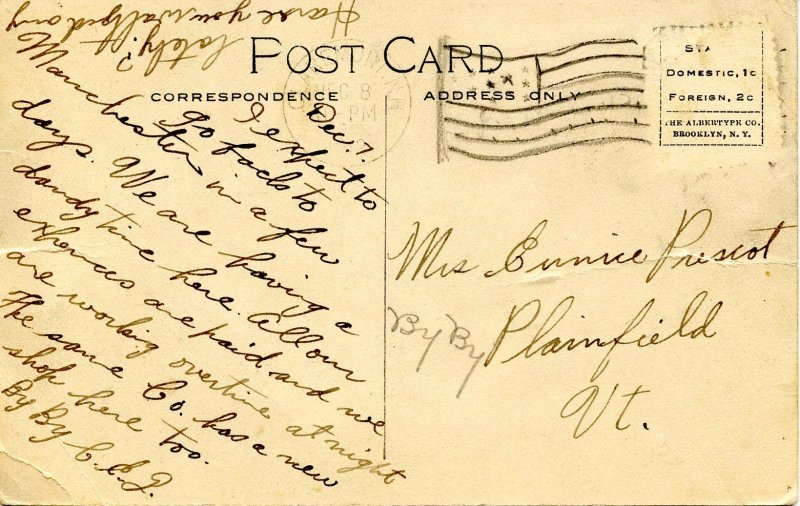 POST CARD
CORRESPONDENCE
ADDRESS ONLY
DOMESTIC, 1c
FOREIGN, 2c
THE ALBERTYPE CO.
BROOKLYN, N. Y.
8
PM
Dec 7.
I expect to
go back to
Manchester in a few
days. We are having a
dandy time here. All our
expences are paid and we
are working overtime at night
The same Co. has a new
shop here too.
By By C.E.J.
Have you waltzed any
lately?
Mrs Eunice Prescot
Plainfield
Vt.
By By